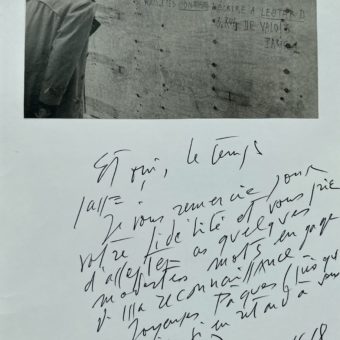 ÉCRIRE A LECTEUR D
3, RUE DE VALOIS
PARIS 1
Et oui, le temps
passe
Je vous remercie pour
votre fidélité et vous prie
d'accepter ces quelques
modestes mots en gage
d'ma reconnaissance
Joyeuses Pâques
si en retard à